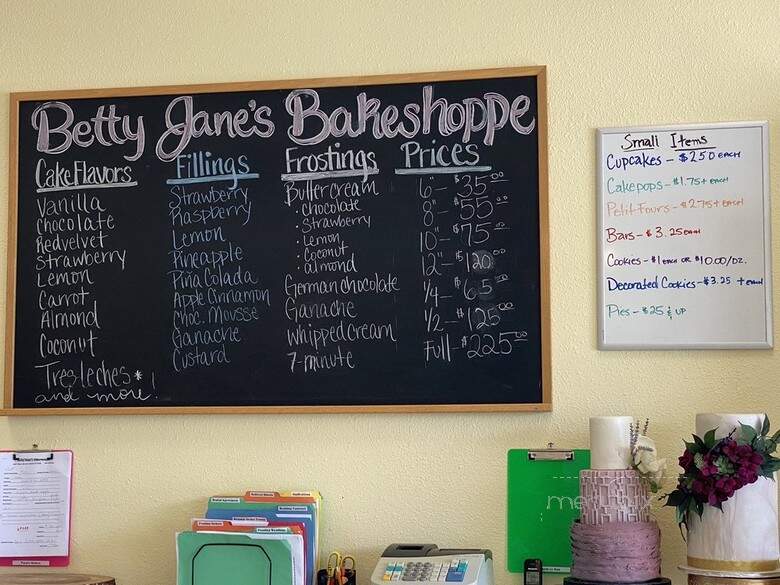 Betty Jane's Bakeshoppe
Cake Flavors
Vanilla
Chocolate
Redvelvet
Strawberry
Lemon
Carrot
Almond
Coconut
Tres leches*
and more!
Fillings
Strawberry
Raspberry
Lemon
Pineapple
Piña Colada
Apple Cinnamon
Choc. Mousse
Ganache
Custard
Frostings
Buttercream
• Chocolate
• Strawberry
• Lemon
• Coconut
• almond
German chocolate
Ganache
Whipped Cream
7-minute
Prices
6" - $35.00
8" - $55.00
10 - $75.00
12" - $120.00
1/4 - $65.00
1/2 - $125.00
Full - $225.00
Small Items
Cupcakes - $2.50 each
Cakepops - $1.75+ each
Petit Fours - $2.75+ each
Bars - $3.25 each
Cookies - $1 each or $10.00/dz.
Decorated Cookies - $3.25 + each
Pies - $25 & up